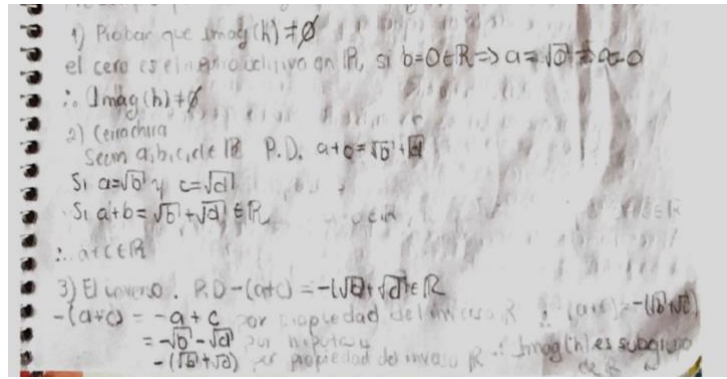 1) Probar que Imag(h) ≠ ∅
el cero es el en ℝ, si b=0∈ℝ => a=√0 => a=0
∴ Imag(h) ≠ ∅
2) Cerradura
Sean a,b,c,d∈ℝ P.D. a+c=√b+√d
Si a=√b y c=√d
Si a+b=√b+√d ∈ℝ
∴ a+c∈ℝ
3) El inverso. P.D -(a+c) = -(√b+√d)∈ℝ
-(a+c) = -a+c por propiedad del inverso ℝ ∴ -(a+c)=-(√b+√d)
= -√b-√d por
-(√b+√d) por propiedad del inverso ℝ ∴ Imag(h) es subgrupo
de ℝ